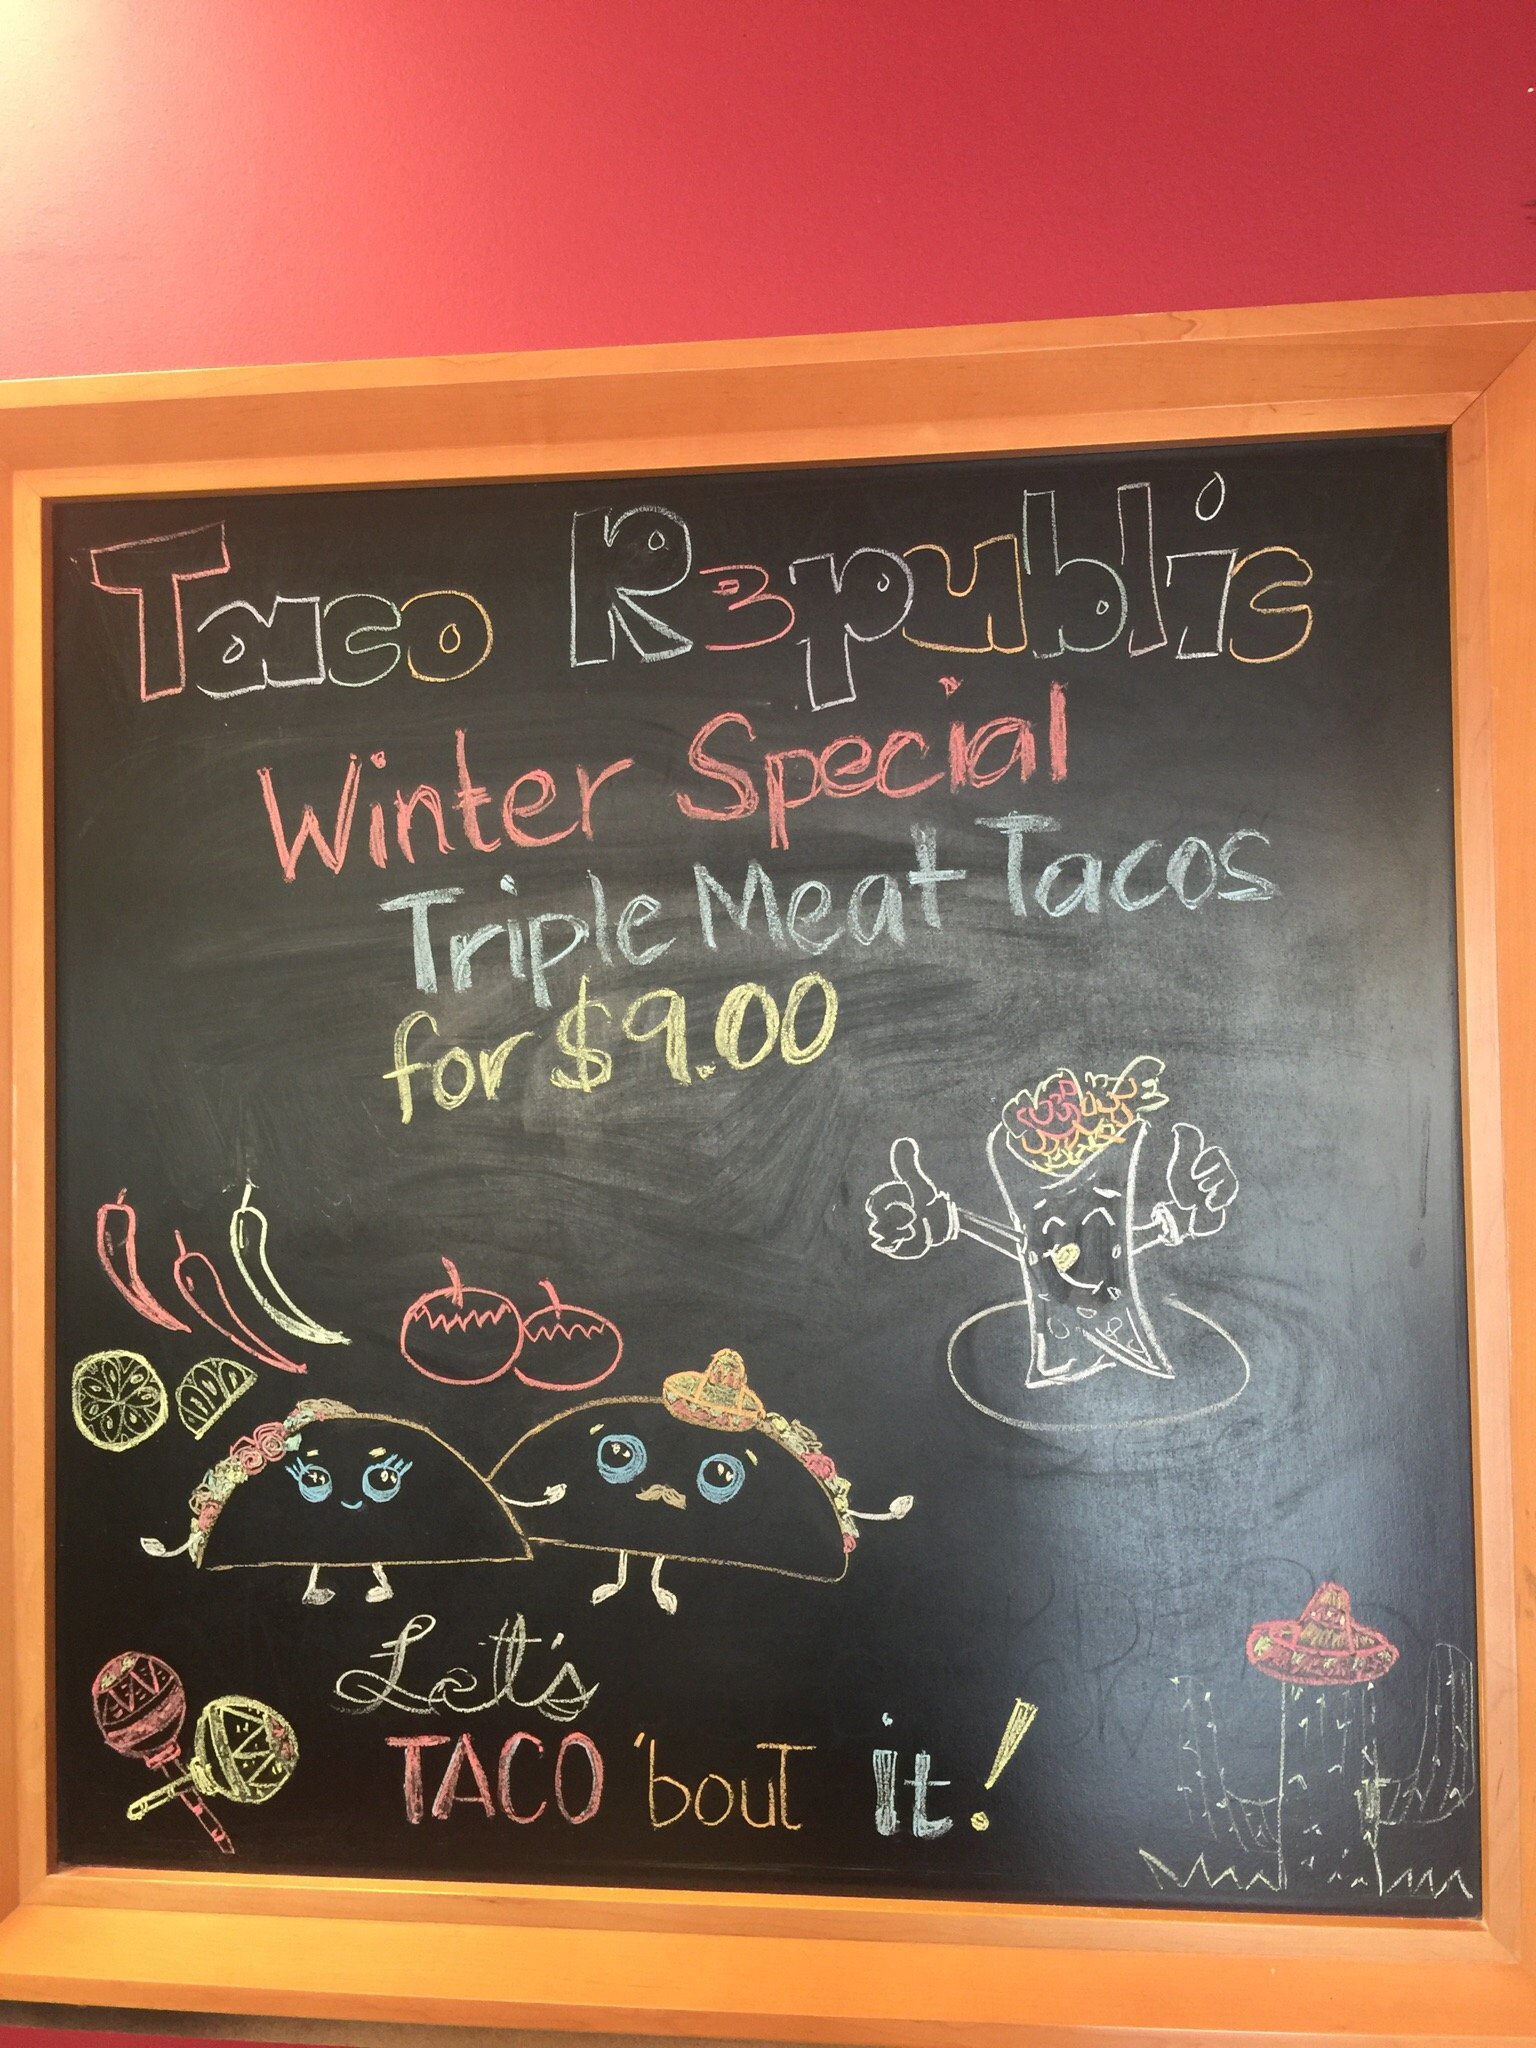 Taco R3public
Winter Special
Triple Meat Tacos
for $9.00
Let's
TACO 'bout it!